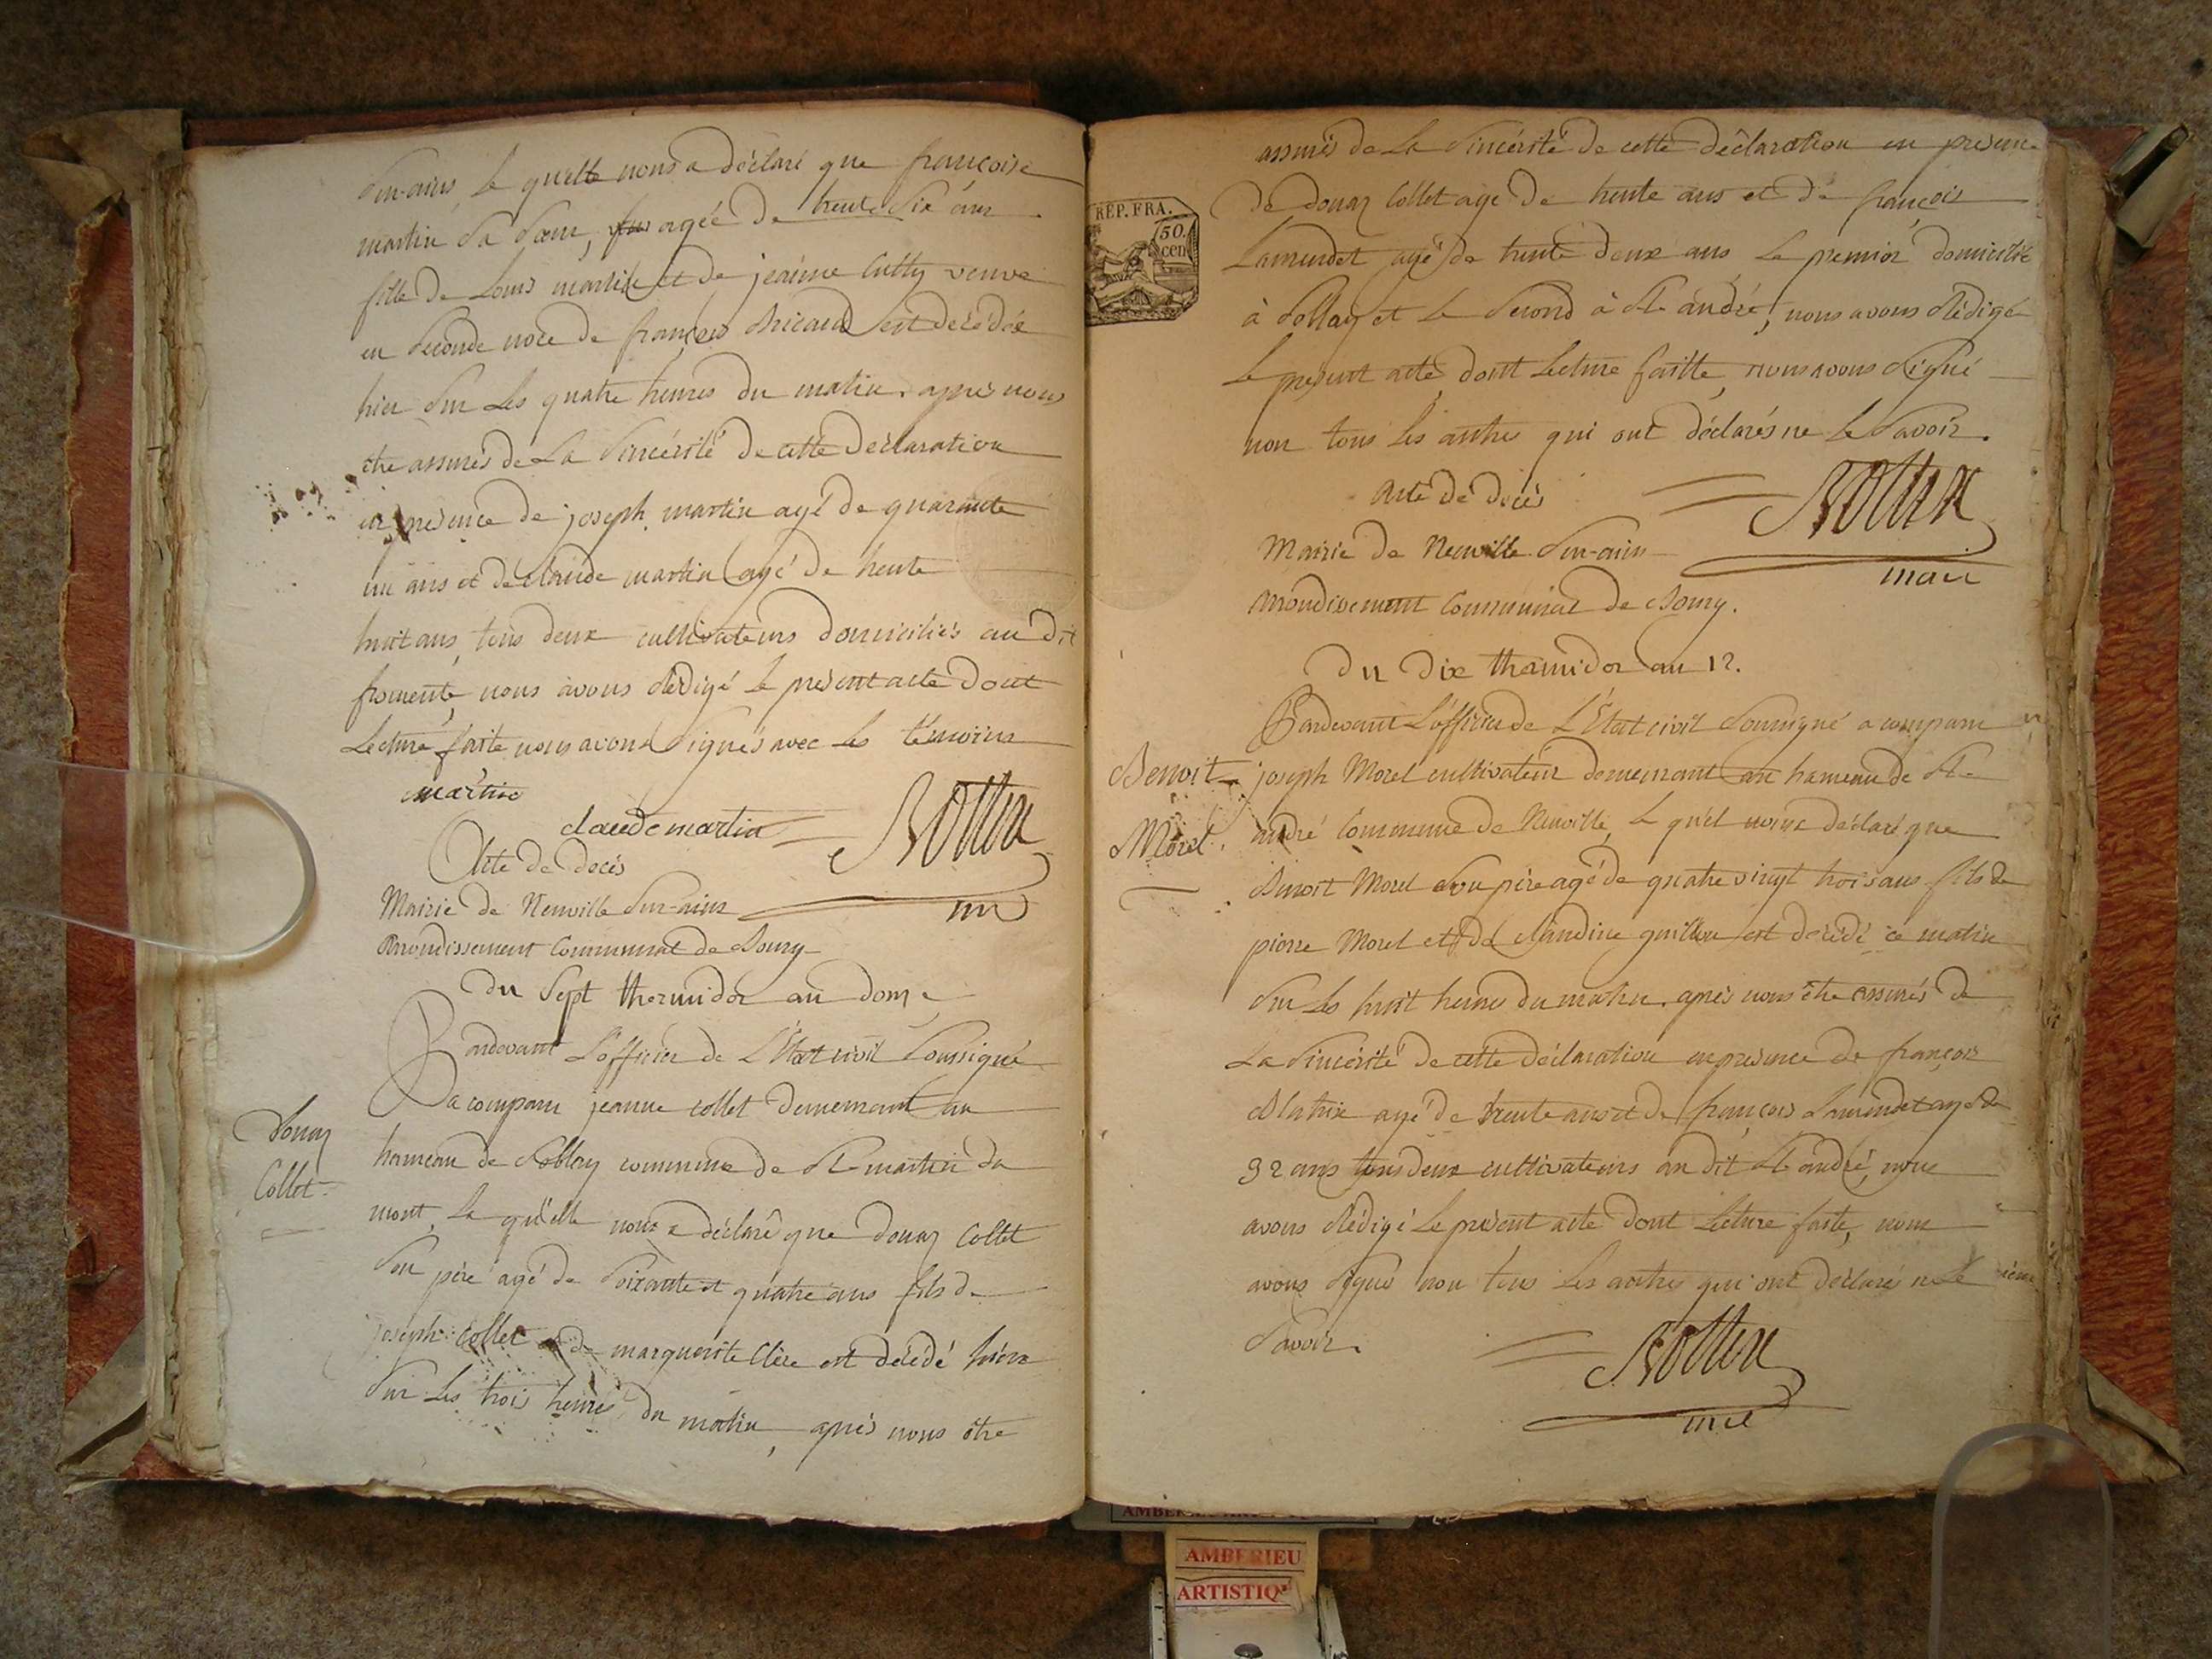 Sur-ains le quelle nous a déclaré que françoise
martin Sa Sœur, agée de trente Six ans
fille de Louis martin et de jeanne Cutty veuve
en Seconde noce de françois Bricaud est decédée
hier Sur les quatre heures du matin. après nous
être assurés de La Sincérité de cette déclaration
en presence de joseph martin agé de quarante
un ans et de claude martin agé de trente
huit ans, tous deux cultivateurs domiciliés au dit
fromente, nous avons Rédigé le present acte dont
Lecture faite nous avons Signés avec les témoins
martin
claude martin
Acte de decés
Mairie de Neuville Sur-ains
Arrondissement Communal de Bourg
du Sept thermidor an douze
Pardevant L'officier de L'État civil Soussigné
a comparu jeanne collet demeurant au
hameau de Sollay commune de St martin du
mont, La qu'elle nous a déclaré que Douaz Collet
Son père agé de Soixante et quatre ans fils de
joseph Collet et de marguerite Clère est décédé hier
Sur les trois heures du matin, après nous être
Douaz
Collet
REP. FRA.
50.
cen
assurés de La Sincérité de cette déclaration en presence
de douaz Collet agé de trente ans et de françois
Lamendet agé de trente deux ans le premier domicilié
à Sollay et le Second à St andré, nous avons Rédigé
le present acte dont Lecture faitte, nous avons Signé
non tous les autres qui ont déclarés ne le Savoir.
Acte de décès
Mairie de Neuville Sur-ains
maire
arrondissement Communal de Bourg.
du dix thermidor an 12.
Pardevant L'officier de L'État civil Soussigné a comparu
Benoit
Morel.
joseph Morel cultivateur demeurant au hameau de St
andré Commune de Neuville, le qu'el nous a déclaré que
Benoit Morel Son père agé de quatre vingt trois ans fils de
pierre Morel et de Claudine guillon est décédé ce matin
Sur les huit heures du matin. après nous être assurés de
La Sincérité de cette déclaration en presence de françois
agé de trente ans et de françois Lamendet agé de
32 ans tous deux cultivateurs au dit St andré, nous
avons Rédigé le présent acte dont Lecture faite, nous
avons Signé non tous les autres qui ont déclaré ne le
Savoir.
AMBERIEU
ARTISTIQ